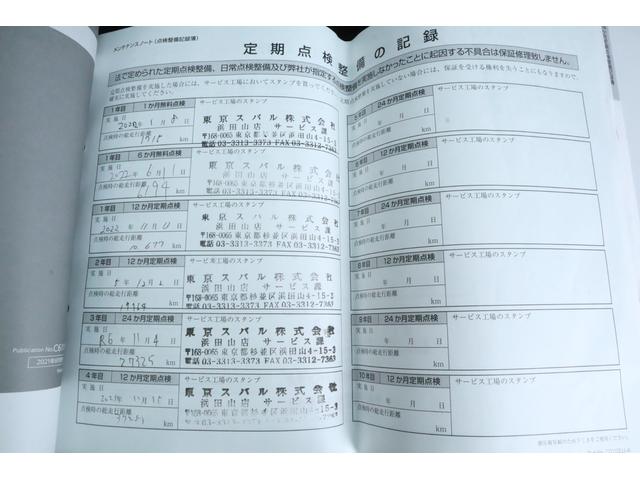 メンテナンスノート(点検整備記録簿)
定期点検整備の記録
法で定められた定期点検整備、日常点検整備及び弊社が指定する
を実施しなかったことに起因する不具合は保証修理致しません。
定期点検を実施した場合には、サービス工場においてスタンプを
実施していない場合には、保証を受ける権利を失うことにもなりますので、
確実に実施してください。
1年目 1か月無料点検 サービス工場のスタンプ
実施日 2022年1月8日
点検時の総走行距離 km
東京スバル株式会社
浜田山店 サービス課
〒168-0065 東京都杉並区浜田山4-15-1
電話 03-3313-3373 FAX 03-3312-7363
1年目 6か月無料点検 サービス工場のスタンプ
実施日 2022年6月11日
点検時の総走行距離 km
東京スバル株式会社
浜田山店 サービス課
〒168-0065 東京都杉並区浜田山4-15-1
電話 03-3313-3373 FAX 03-3312-7363
1年目 12か月定期点検 サービス工場のスタンプ
実施日 2022年11月 日
点検時の総走行距離 10677 km
東京スバル株式会社
浜田山店 サービス課
〒168-0065 東京都杉並区浜田山4-15-1
電話 03-3313-3373 FAX 03-3312-7363
2年目 12か月定期点検 サービス工場のスタンプ
実施日 年12月2日
点検時の総走行距離 km
東京スバル株式会社
浜田山店 サービス課
〒168-0065 東京都杉並区浜田山4-15-1
電話 03-3313-3373 FAX 03-3312-7363
3年目 24か月定期点検 サービス工場のスタンプ
実施日 R6年11月4日
点検時の総走行距離 27325 km
東京スバル株式会社
浜田山店 サービス課
〒168-0065 東京都杉並区浜田山4-15-1
電話 03-3313-3373 FAX 03-3312-7363
4年目 12か月定期点検 サービス工場のスタンプ
実施日 年11月15日
点検時の総走行距離 km
東京スバル株式会社
浜田山店 サービス課
サービス工場のスタンプ
実施日 年 月 日
点検時の総走行距離 km
サービス工場のスタンプ
年 月 日
点検時の総走行距離 km
7年目 24か月定期点検 サービス工場のスタンプ
実施日 年 月 日
点検時の総走行距離 km
8年目 12か月定期点検 サービス工場のスタンプ
実施日 年 月 日
点検時の総走行距離 km
9年目 24か月定期点検 サービス工場のスタンプ
実施日 年 月 日
点検時の総走行距離 km
10年目 12か月定期点検 サービス工場のスタンプ
実施日 年 月 日
点検時の総走行距離 km
Publication No.